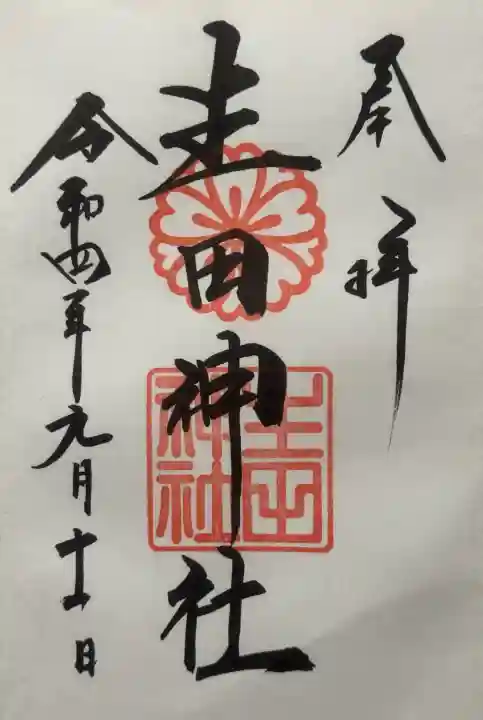 奉拝
生田神社
令和四年九月十一日
生田
神社